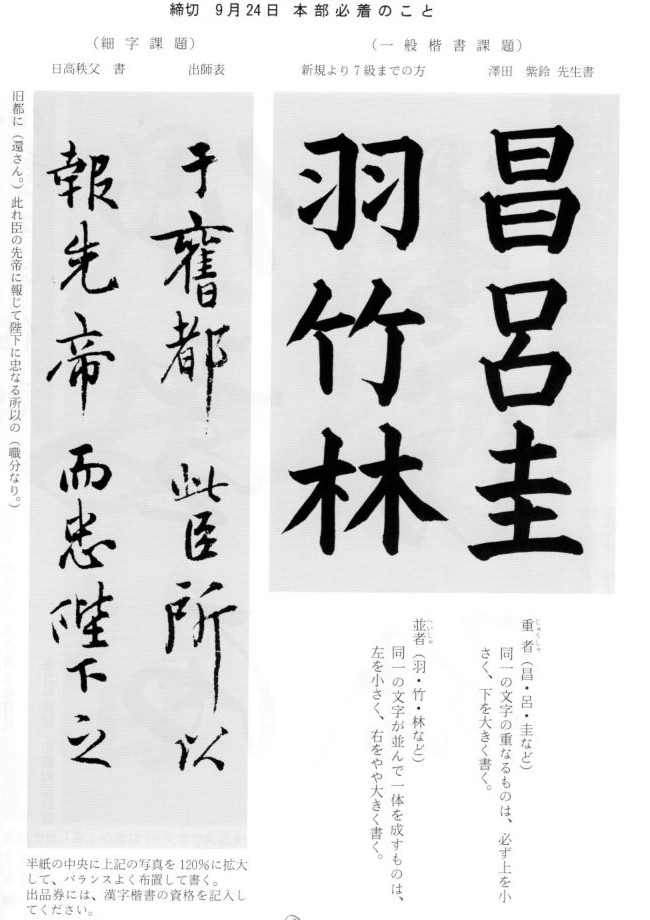 締切 9月24日 本部必着のこと
（一般楷書課題）
新規より7級までの方 澤田 紫鈴 先生書
昌呂圭
羽竹林
重者（昌・呂・圭など）
じゅうしゃ
同一の文字の重なるものは、必ず上を小
さく、下を大きく書く。
並者（羽・竹・林など）
へいしゃ
同一の文字が並んで一体を成すものは、
左を小さく、右をやや大きく書く。
（細字課題）
日高秩父 書 出師表
于舊都此臣所以
報先帝而忠陛下之
旧都に（還さん。）此れ臣の先帝に報じて陛下に忠なる所以の（職分なり。）
半紙の中央に上記の写真を120%に拡大
して、バランスよく布置して書く。
出品券には、漢字楷書の資格を記入し
てください。